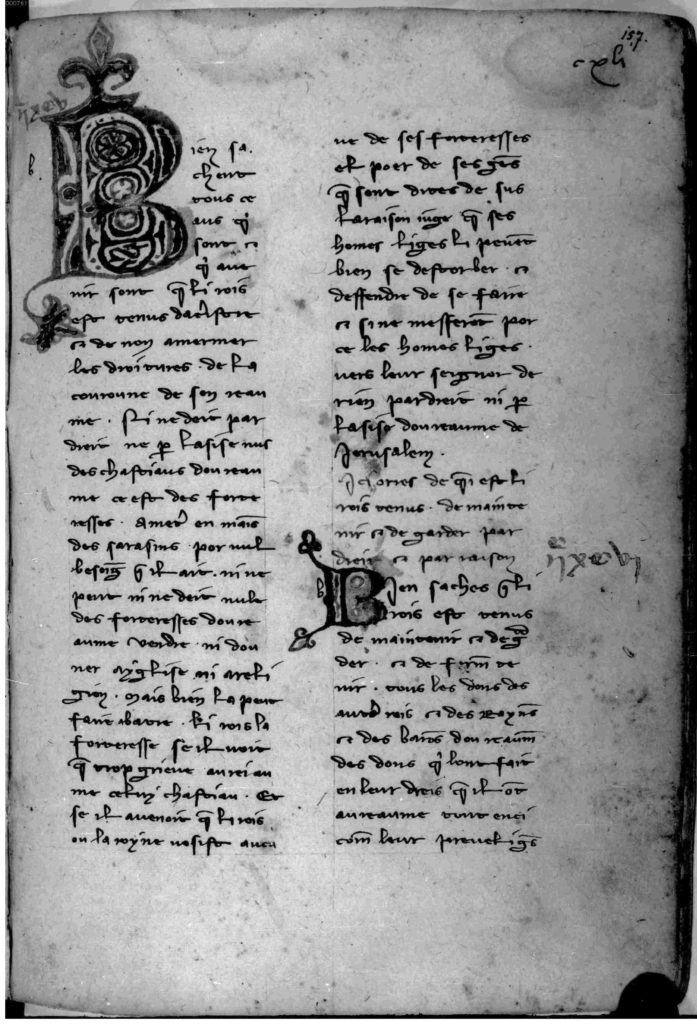 000761
157.
cxli
ŋ̃xcv
b.
Bien sa.
chent
tous ce
aus q̇
sont ⁊
q̇ aue
nir sont q̃ li rois
est tenus dacreistre
⁊ de non amermer
les droitures. de la
couroune de son reau
me. Ni ne deit par
dreit ne ꝑ lasise nus
des chastiaus dou reau
me ce est des forte
resses. ametr̉ en mais̃
des sarasins. por nul
besoig̃ q̃ il ait. ni ne
peut ni ne deit nule
des forteresses dou re
aume vendre. ni dou
ner a yglise ni a reli
gion. Mais bien la peut
faire abatre. li rois la
forteresse se il voit
q̃ trop grieve au reiau
me celuy chastiau. Et
se il avenoit q̃ li rois
ou la royne vosist aucu
ne de ses forteresses
el poer de ses gẽs
q̃ sont dites de sus
la raison iuge q̃ ses
homes liges li pevẽt
bien se destorber. ⁊
deffendre de se faire
⁊ si ne mesferõt por
ce les homes liges.
vers leur seignor de
rien par dreit ni ꝑ
lasise dou reaume de
Jerusalem.
Ici orres de q̃i est li
rois tenus. de mainte
nir ⁊ de garder par
dreit ⁊ par raison
ŋ̃xcvi
b
Bien saches q̃ li
rois est tenus
de maintenir ⁊ de gͣr
der. ⁊ de ferm̃ te
nir. tous les dons des
autr̉ rois ⁊ des Roynẽs
⁊ des barõs dou reaum̃
des dons q̇ lont fait
en leur dreis q̃ il õt
au reaume tout enci
com̃ leur previligẽs